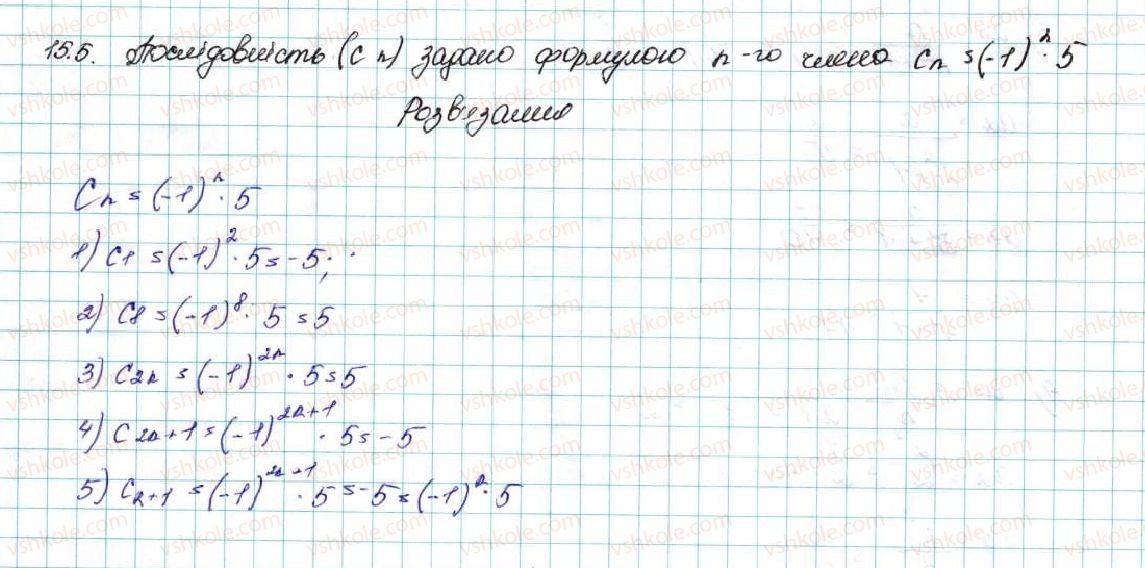 15.5. Послідовність (c n) задано формулою n-го члена Cn = (-1)^n · 5
Розвязання
Cn = (-1)^n · 5
1) C1 = (-1)^2 · 5 = -5;
2) C8 = (-1)^8 · 5 = 5
3) C2n = (-1)^2n · 5 = 5
4) C2n+1 = (-1)^2n+1 · 5 = -5
5) Cn+1 = (-1)^2n+1 · 5 = -5 = (-1)^n · 5